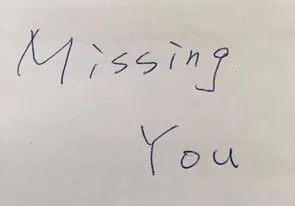 Missing
You